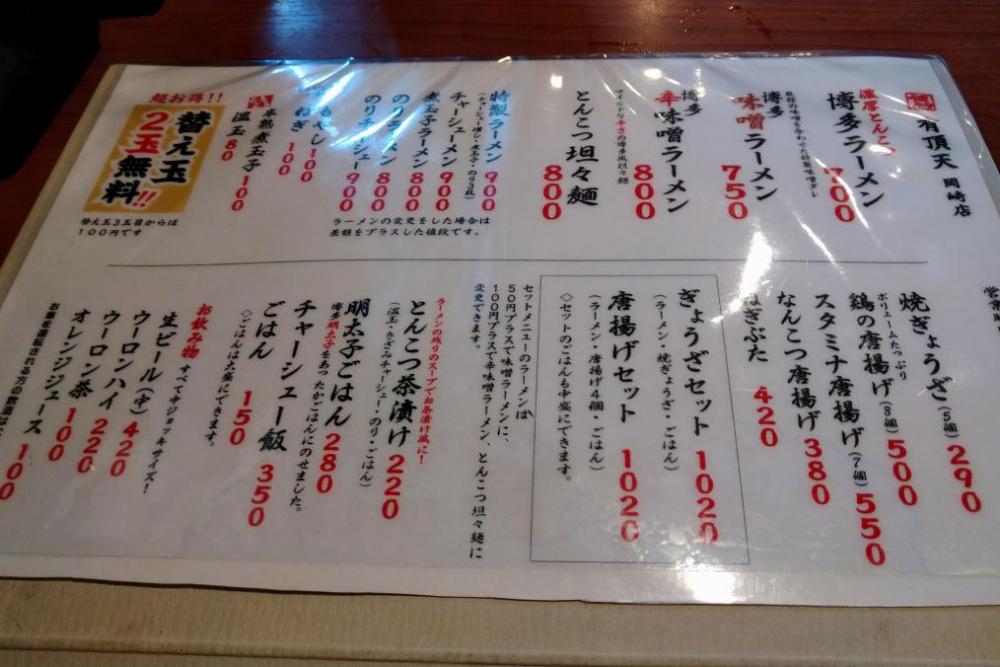 有頂天 岡崎店
濃厚とんこつ
博多ラーメン 700
博多
味噌ラーメン 750
博多
辛味噌ラーメン 800
マイルドな辛さの博多風坦々麺
とんこつ坦々麺 800
特製ラーメン 900
(チャーシュー増し・煮玉子・のり3枚)
チャーシューメン 900
煮玉子ラーメン 800
のりラーメン 800
のりチャーシュー 900
ラーメンの変更をした場合は
差額をプラスした値段です。
もやし 100
ねぎ 100
半熟煮玉子 100
温玉 80
超お得!!
替え玉
2玉無料!!
替え玉3玉目からは
100円です
焼ぎょうざ(5個) 290
ボリュームたっぷり
鶏の唐揚げ(8個) 500
スタミナ唐揚げ(7個) 550
なんこつ唐揚げ 380
ねぎぶた 420
ぎょうざセット 1020
(ラーメン・焼ぎょうざ・ごはん)
唐揚げセット 1020
(ラーメン・唐揚げ4個・ごはん)
◇セットのごはんも中盛にできます。
セットメニューのラーメンは
50円プラスで味噌ラーメンに、
100円プラスで辛味噌ラーメン、とんこつ坦々麺に
変更できます。
ラーメンの残りのスープでお茶漬け風に!
とんこつ茶漬け 220
(温玉・きざみチャーシュー・のり・ごはん)
明太子ごはん 280
博多明太子をあったかごはんにのせました。
チャーシュー飯 350
ごはん 150
◇ごはんは大盛にできます。
お飲み物 すべて中ジョッキサイズ!
生ビール(中) 420
ウーロンハイ 220
ウーロン茶 100
オレンジジュース 100
お車を運転される方の飲酒は